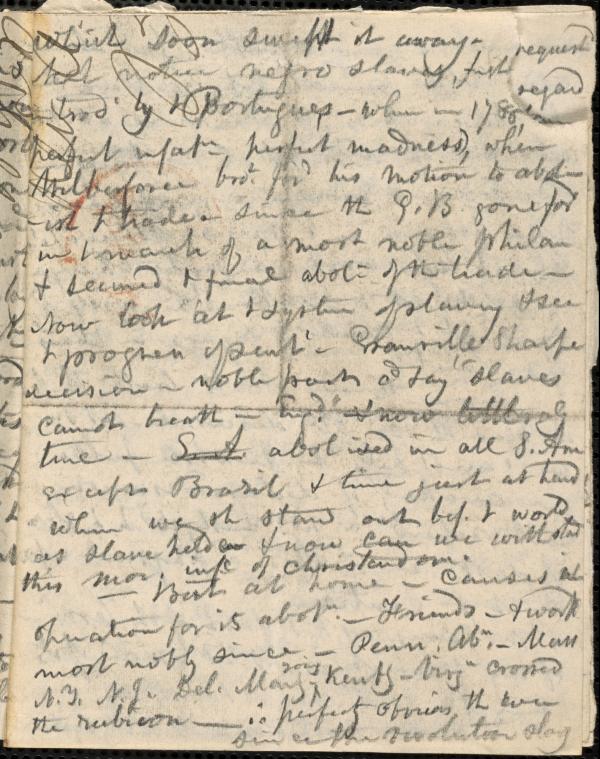 which soon swept it away - request
that notice negro slavery, first regard
introd' by t Portuguese - when in 1788
perfect infatn perfect madness, when
Wilberforce brot for'd his motion to abol-
ish t trade - since the G.B. gone for'd
in t march of a most noble philan
& secured t final aboltn of the trade -
Now look at t system of slavery & see
t progress of sent' - Granville Sharpe
decision - noble poets cd say "slaves
cannot breath - Engd" & now litterally
true - S.A. abolised in all S. Am
except Brazil & time just at hand
when we sh stand out bef. t world
as slave holders & now can we withstand
this mor. infc of christendom.
But at home - Causes in
operation for is abotn. - Friends - & work
most nobly since - Penn. Abn. - Mass
N.Y. N.J. Del. Mary Kenty - Virgn crossed
the rubicon - is perfect obvious th ever
since the revolution slav